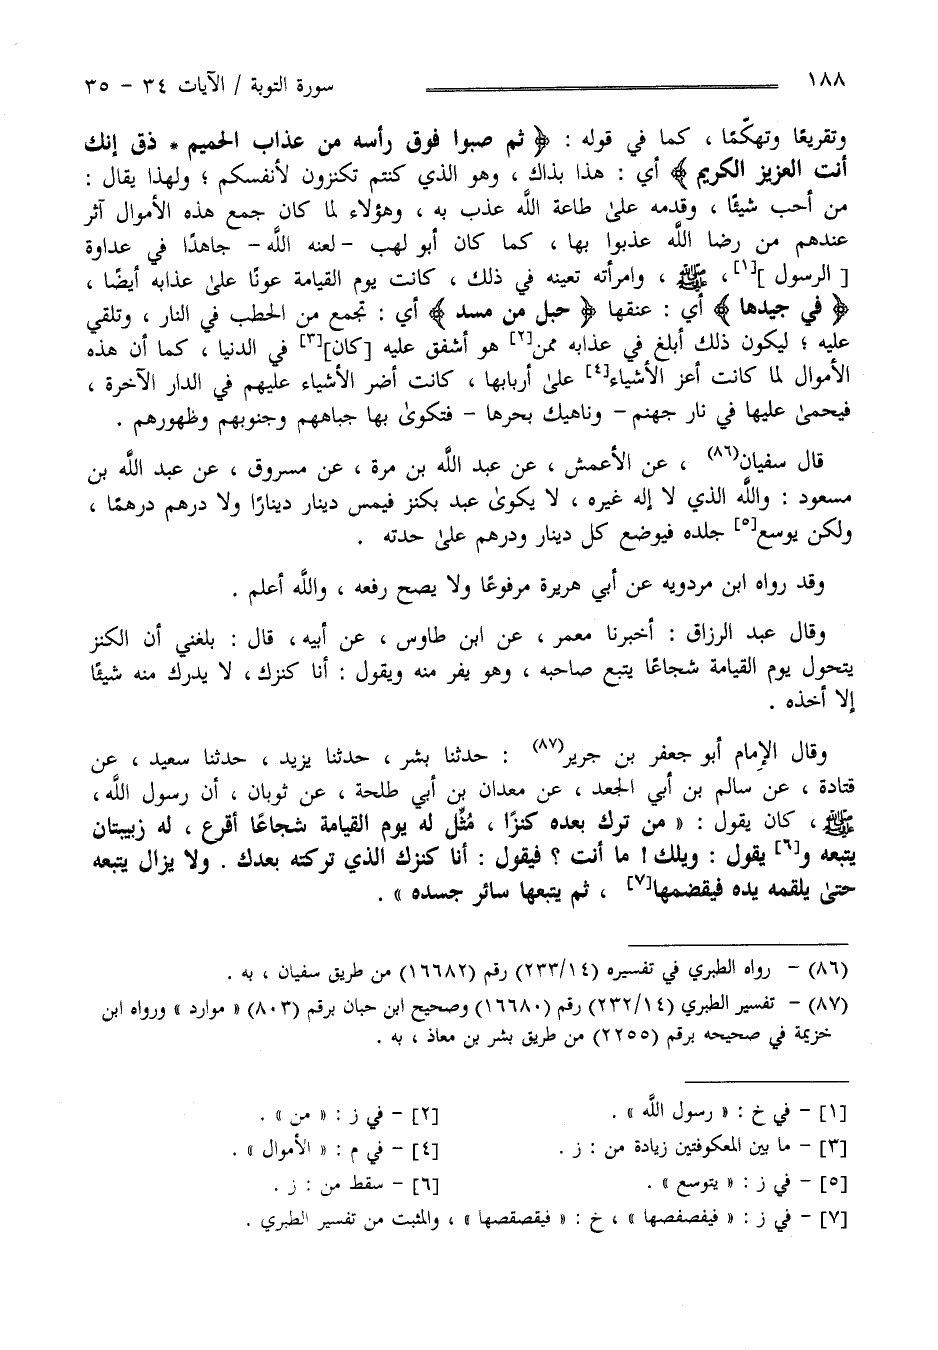 ١٨٨
سورة التوبة / الآيات ٣٤ - ٣٥
وتقريعًا وتهكّمًا ، كما في قوله : ﴿ ثم صبوا فوق رأسه من عذاب الحميم * ذق إنك
أنت العزيز الكريم ﴾ أي : هذا بذاك ، وهو الذي كنتم تكنزون لأنفسكم ؛ ولهذا يقال :
من أحب شيئًا ، وقدمه على طاعة اللَّه عذب به ، وهؤلاء لما كان جمع هذه الأموال آثر
عندهم من رضا اللَّه عذبوا بها ، كما كان أبو لهب -لعنه اللَّه- جاهدًا في عداوة
[ الرسول ][١]، ﷺ ، وامرأته تعينه في ذلك ، كانت يوم القيامة عونًا على عذابه أيضًا ،
﴿ في جيدها ﴾ أي : عنقها ﴿ حبل من مسد ﴾ أي : تجمع من الحطب في النار ، وتلقي
عليه ؛ ليكون ذلك أبلغ في عذابه ممن[٢] هو أشفق عليه [كان][٣] في الدنيا ، كما أن هذه
الأموال لما كانت أعز الأشياء[٤] على أربابها ، كانت أضر الأشياء عليهم في الدار الآخرة ،
فيحمى عليها في نار جهنم- وناهيك بحرها - فتكوى بها جباههم وجنوبهم وظهورهم .
قال سفيان(٨٦) ، عن الأعمش ، عن عبد اللَّه بن مرة ، عن مسروق ، عن عبد اللَّه بن
مسعود : واللَّه الذي لا إله غيره ، لا يكوى عبد بكنز فيمس دينار دينارًا ولا درهم درهمًا ،
ولكن يوسع[٥] جلده فيوضع كل دينار ودرهم على حدته .
وقد رواه ابن مردويه عن أبي هريرة مرفوعًا ولا يصح رفعه ، واللَّه أعلم .
وقال عبد الرزاق : أخبرنا معمر ، عن ابن طاوس ، عن أبيه، قال : بلغني أن الكنز
يتحول يوم القيامة شجاعًا يتبع صاحبه ، وهو يفر منه ويقول : أنا كنزك، لا يدرك منه شيئًا
إلا أخذه .
وقال الإمام أبو جعفر بن جرير(٨٧) : حدثنا بشر ، حدثنا يزيد ، حدثنا سعيد ، عن
قتادة ، عن سالم بن أبي الجعد ، عن معدان بن أبي طلحة ، عن ثوبان ، أن رسول اللَّه،
ﷺ ، كان يقول : « من ترك بعده كنزًا ، مُثِّل له يوم القيامة شجاعًا أقرع ، له زبيبتان
يتبعه و[٦] يقول : ويلك! ما أنت ؟ فيقول : أنا كنزك الذي تركته بعدك . ولا يزال يتبعه
حتى يلقمه يده فيقضمها[٧] ، ثم يتبعها سائر جسده » .
(٨٦) - رواه الطبري في تفسيره (٢٣٣/١٤) رقم (١٦٦٨٢) من طريق سفيان ، به .
(٨٧) - تفسير الطبري (٢٣٢/١٤) رقم (١٦٦٨٠) وصحيح ابن حبان برقم (٨٠٣) « موارد » ورواه ابن
خزيمة في صحيحه برقم (٢٢٥٥) من طريق بشر بن معاذ ، به .
[١] - في خ : « رسول اللَّه » . [٢] - في ز : « من » .
[٣] - ما بين المعكوفتين زيادة من : ز . [٤] - في م : « الأموال » .
[٥] - في ز : « يتوسع » . [٦] - سقط من : ز .
[٧] - في ز : « فيفصفصها » ، خ : « فيقصقصها » ، والمثبت من تفسير الطبري .